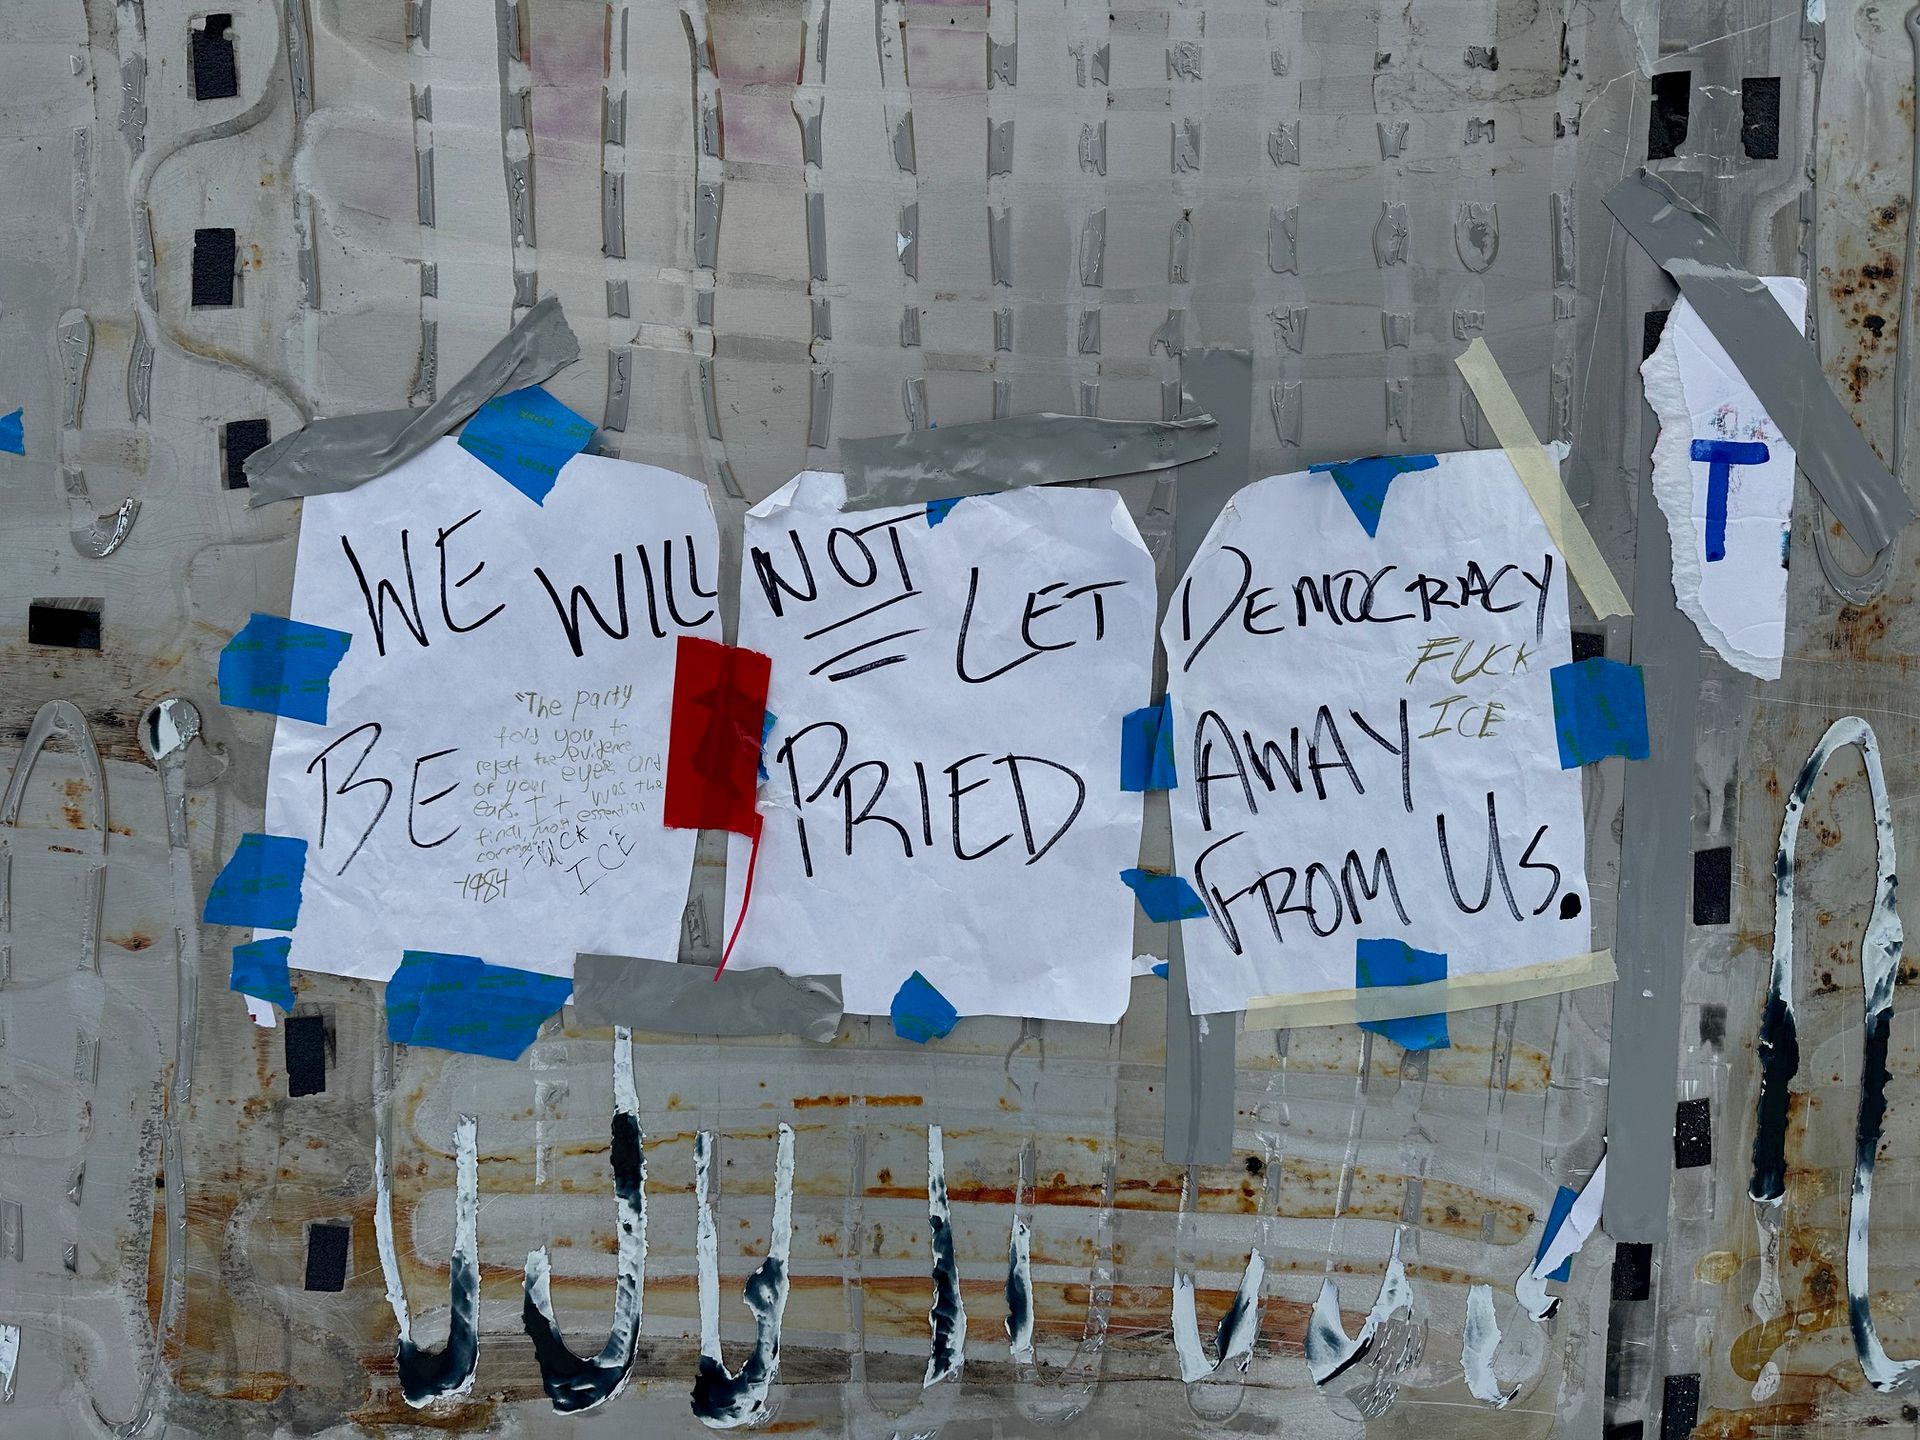 WE WILL
BE
"The party
told you to
reject the evidence
of your eyes and
ears. It was the
final, most essential
command"
1984
FUCK
ICE
NOT LET
PRIED
DEMOCRACY
FUCK
ICE
AWAY
FROM US.
T